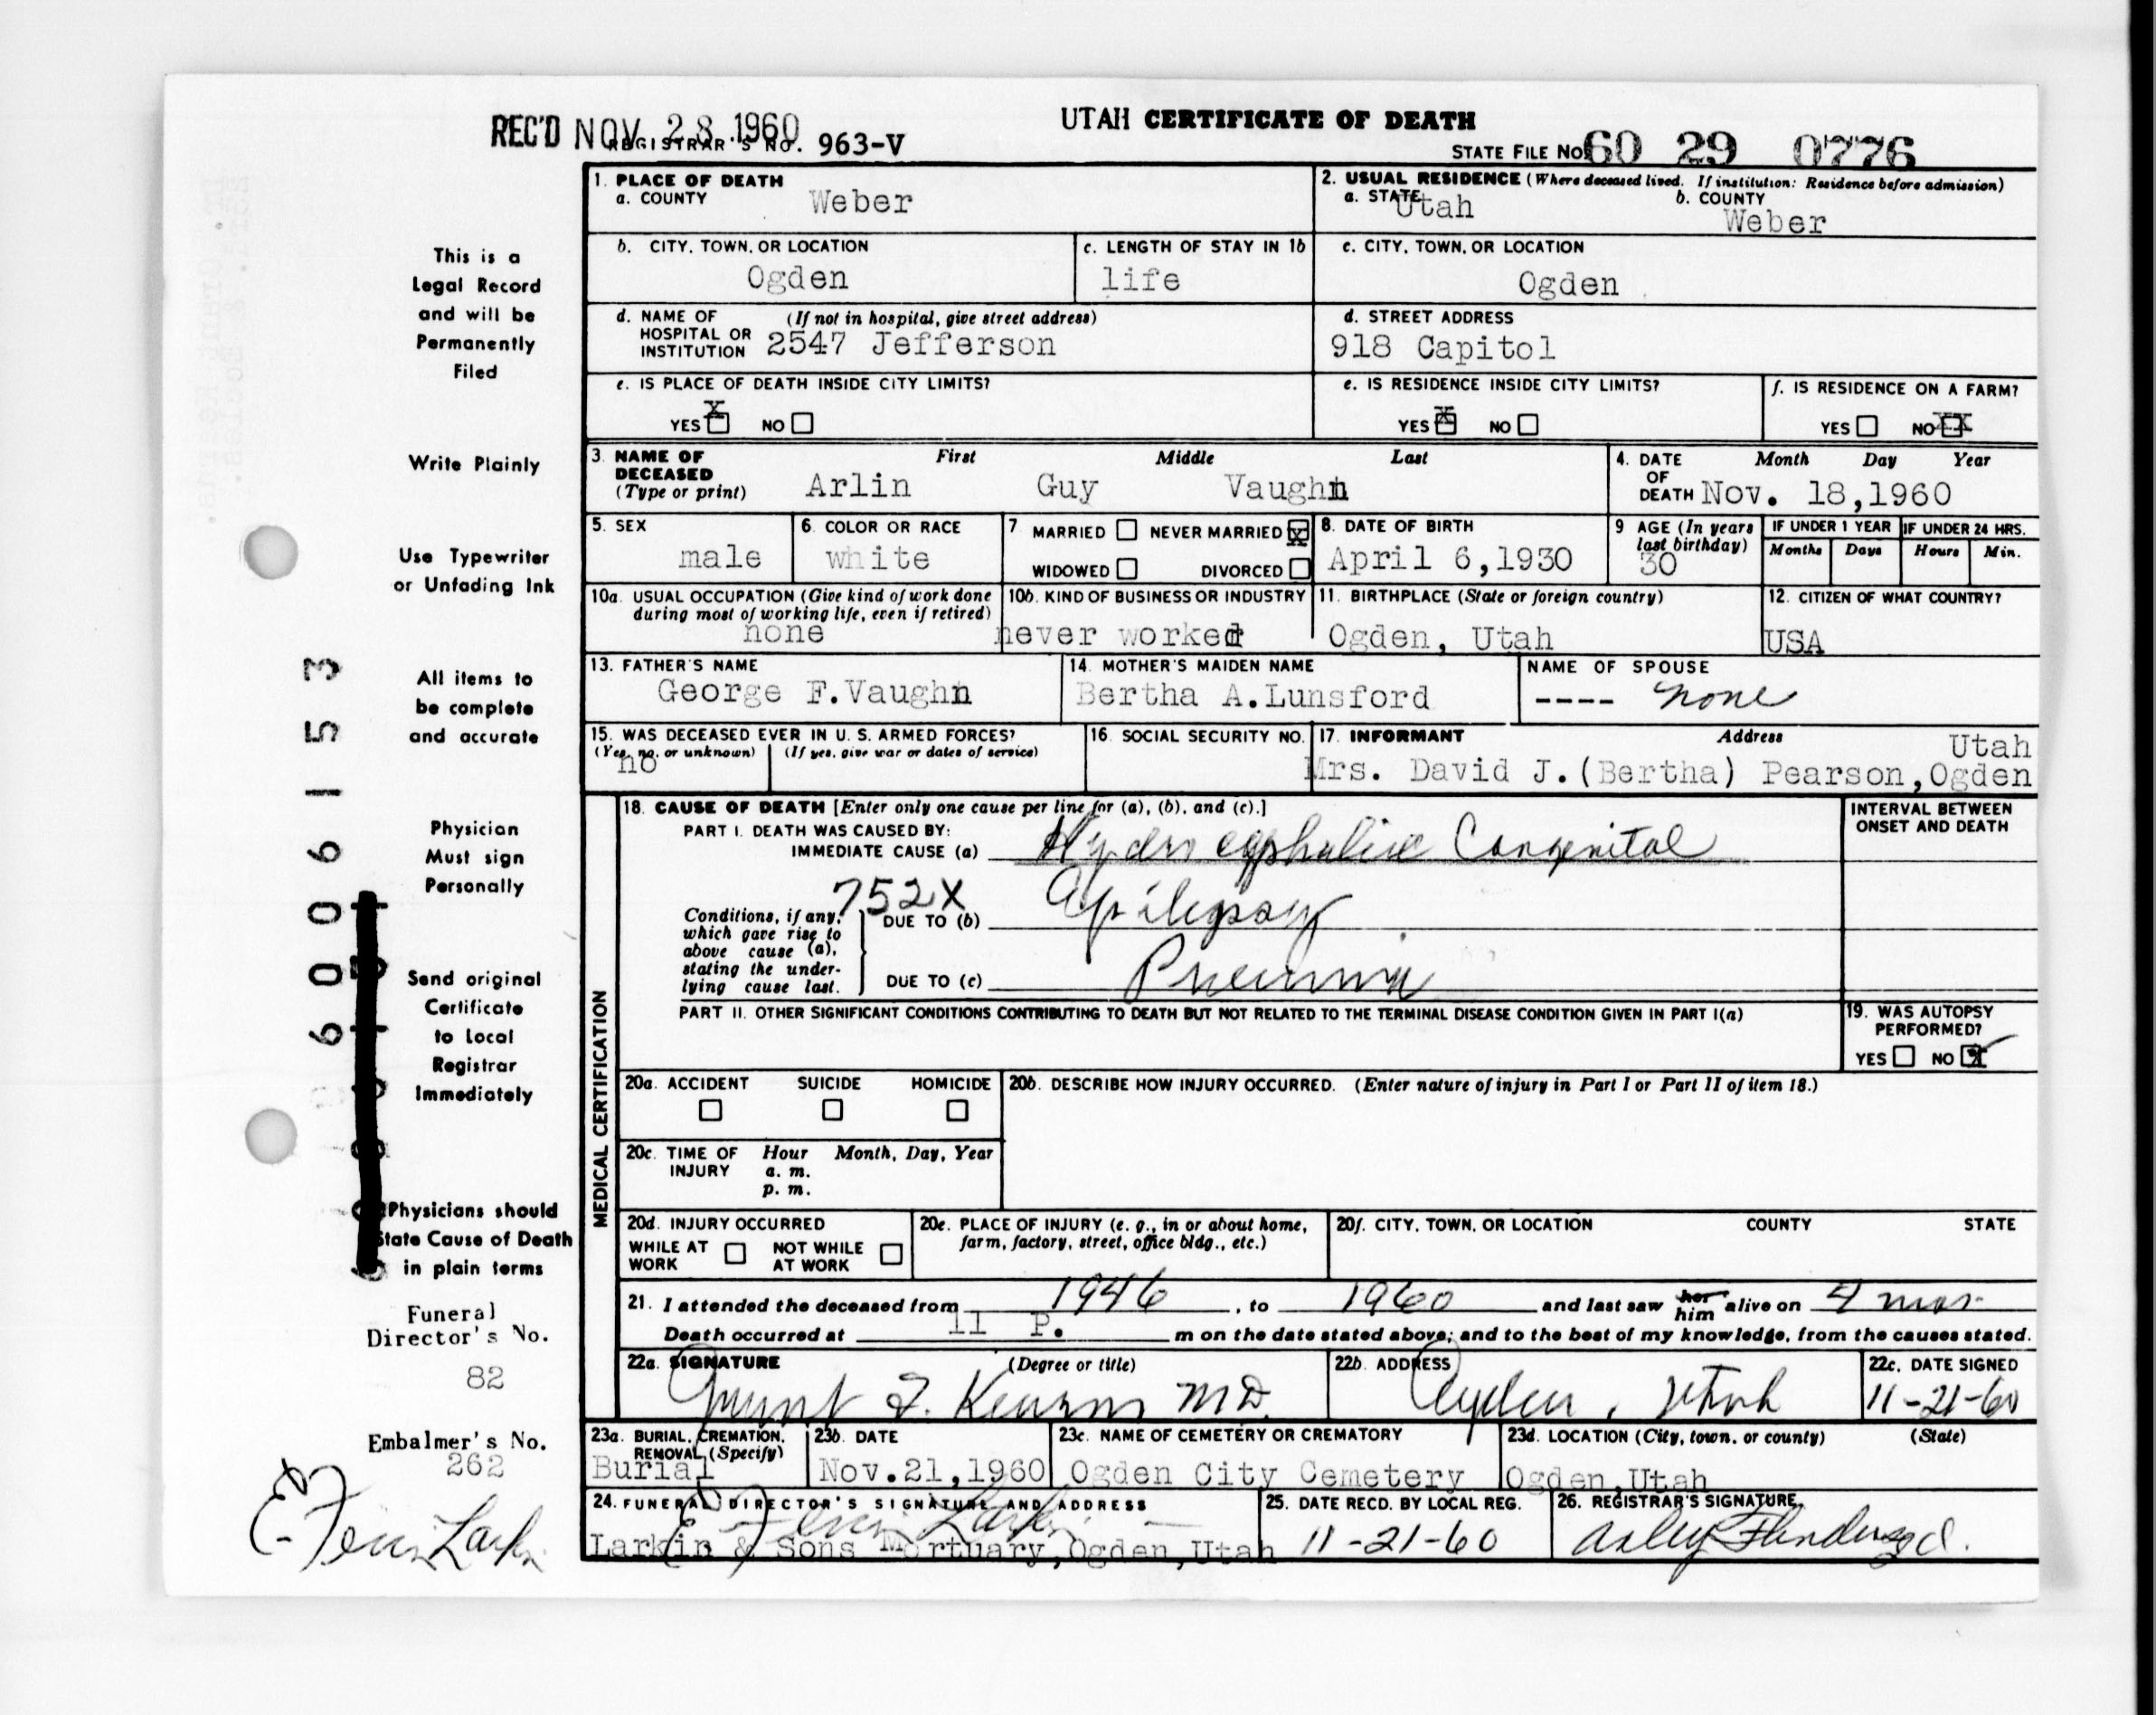 UTAH CERTIFICATE OF DEATH
REC'D NOV 28 1960 REGISTRAR'S NO. 963-V
STATE FILE NO. 60 29 0776
1. PLACE OF DEATH
a. COUNTY Weber
2. USUAL RESIDENCE (Where deceased lived. If institution: Residence before admission)
a. STATE Utah b. COUNTY Weber
b. CITY, TOWN, OR LOCATION Ogden
c. LENGTH OF STAY IN 1b life
c. CITY, TOWN, OR LOCATION Ogden
d. NAME OF HOSPITAL OR INSTITUTION (If not in hospital, give street address) 2547 Jefferson
d. STREET ADDRESS 918 Capitol
e. IS PLACE OF DEATH INSIDE CITY LIMITS? YES X NO
e. IS RESIDENCE INSIDE CITY LIMITS? YES X NO
f. IS RESIDENCE ON A FARM? YES NO XX
3. NAME OF DECEASED (Type or print) First Middle Last
Arlin Guy Vaughn
4. DATE OF DEATH Month Day Year
Nov. 18,1960
5. SEX male
6. COLOR OR RACE white
7 MARRIED NEVER MARRIED X WIDOWED DIVORCED
8. DATE OF BIRTH April 6,1930
9 AGE (In years last birthday) 30
IF UNDER 1 YEAR Months Days
IF UNDER 24 HRS. Hours Min.
10a. USUAL OCCUPATION (Give kind of work done during most of working life, even if retired) none
10b. KIND OF BUSINESS OR INDUSTRY never worked
11. BIRTHPLACE (State or foreign country) Ogden, Utah
12. CITIZEN OF WHAT COUNTRY? USA
13. FATHER'S NAME George F.Vaughn
14. MOTHER'S MAIDEN NAME Bertha A.Lunsford
NAME OF SPOUSE ---- none
15. WAS DECEASED EVER IN U. S. ARMED FORCES? (Yes, no, or unknown) (If yes, give war or dates of service) no
16. SOCIAL SECURITY NO.
17. INFORMANT Address
Mrs. David J.(Bertha) Pearson,Ogden Utah
MEDICAL CERTIFICATION
18. CAUSE OF DEATH [Enter only one cause per line for (a), (b), and (c).]
INTERVAL BETWEEN ONSET AND DEATH
PART I. DEATH WAS CAUSED BY:
IMMEDIATE CAUSE (a) Congenital
752X
Conditions, if any, which gave rise to above cause (a), stating the underlying cause last.
DUE TO (b) Epilepsy
DUE TO (c)
PART II. OTHER SIGNIFICANT CONDITIONS CONTRIBUTING TO DEATH BUT NOT RELATED TO THE TERMINAL DISEASE CONDITION GIVEN IN PART I(a)
19. WAS AUTOPSY PERFORMED? YES NO X
20a. ACCIDENT SUICIDE HOMICIDE
20b. DESCRIBE HOW INJURY OCCURRED. (Enter nature of injury in Part I or Part II of item 18.)
20c. TIME OF INJURY Hour a. m. p. m. Month, Day, Year
20d. INJURY OCCURRED WHILE AT WORK NOT WHILE AT WORK
20e. PLACE OF INJURY (e. g., in or about home, farm, factory, street, office bldg., etc.)
20f. CITY, TOWN, OR LOCATION COUNTY STATE
21. I attended the deceased from 1946, to 1960 and last saw her him alive on 4 mos.
Death occurred at 11 P. m on the date stated above; and to the best of my knowledge, from the causes stated.
22a. SIGNATURE (Degree or title) MD.
22b. ADDRESS Ogden, Utah
22c. DATE SIGNED 11-21-60
23a. BURIAL, CREMATION, REMOVAL (Specify) Burial
23b. DATE Nov.21,1960
23c. NAME OF CEMETERY OR CREMATORY Ogden City Cemetery
23d. LOCATION (City, town, or county) (State) Ogden,Utah
24. FUNERAL DIRECTOR'S SIGNATURE AND ADDRESS
Larkin & Sons Mortuary,Ogden,Utah
25. DATE RECD. BY LOCAL REG. 11-21-60
26. REGISTRAR'S SIGNATURE
This is a
Legal Record
and will be
Permanently
Filed
Write Plainly
Use Typewriter
or Unfading Ink
All items to
be complete
and accurate
Physician
Must sign
Personally
Send original
Certificate
to Local
Registrar
Immediately
Physicians should
State Cause of Death
in plain terms
Funeral
Director's No.
82
Embalmer's No.
262
60061553